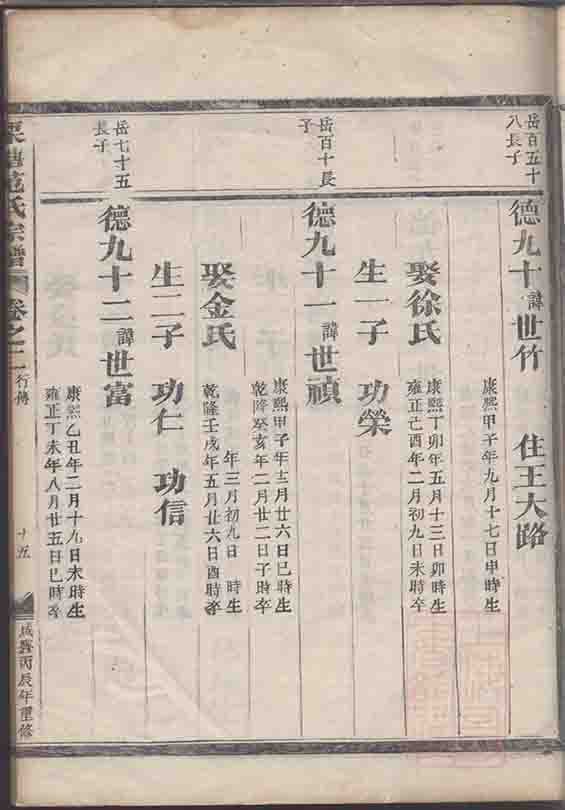 岳百五十
八長子
德九十諱世竹 住王大路
康熙甲子年九月十七日申時生
娶徐氏
康熙丁卯年五月十三日卯時生
雍正己酉年二月初九日未時卒
生一子 功榮
岳百十長
子
德九十一諱世禎
康熙甲子年十二月廿六日巳時生
乾隆癸亥年二月廿二日子時卒
娶金氏
年三月初九日 時生
乾隆壬戌年五月廿六日酉時卒
生二子 功仁 功信
岳七十五
長子
德九十二諱世富
康熙乙丑年二月十九日未時生
雍正丁未年八月廿五日巳時卒
范氏宗譜 卷之二 行傳 十五 咸豐丙辰年重修